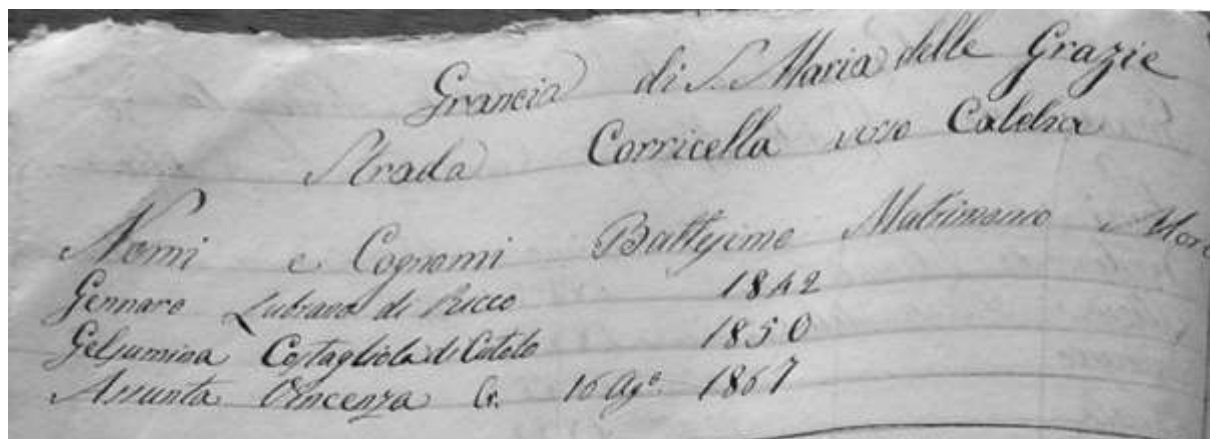 Grancia di S. Maria delle Grazie
Strada Corricella verso
Nomi e Cognomi Battesimo Matrimonio Mor
Gennaro Lubrano di Ricco 1842
Gelsumina Costagliola di 1850
Assunta Vincenza Cr. 16 Ag.º 1867